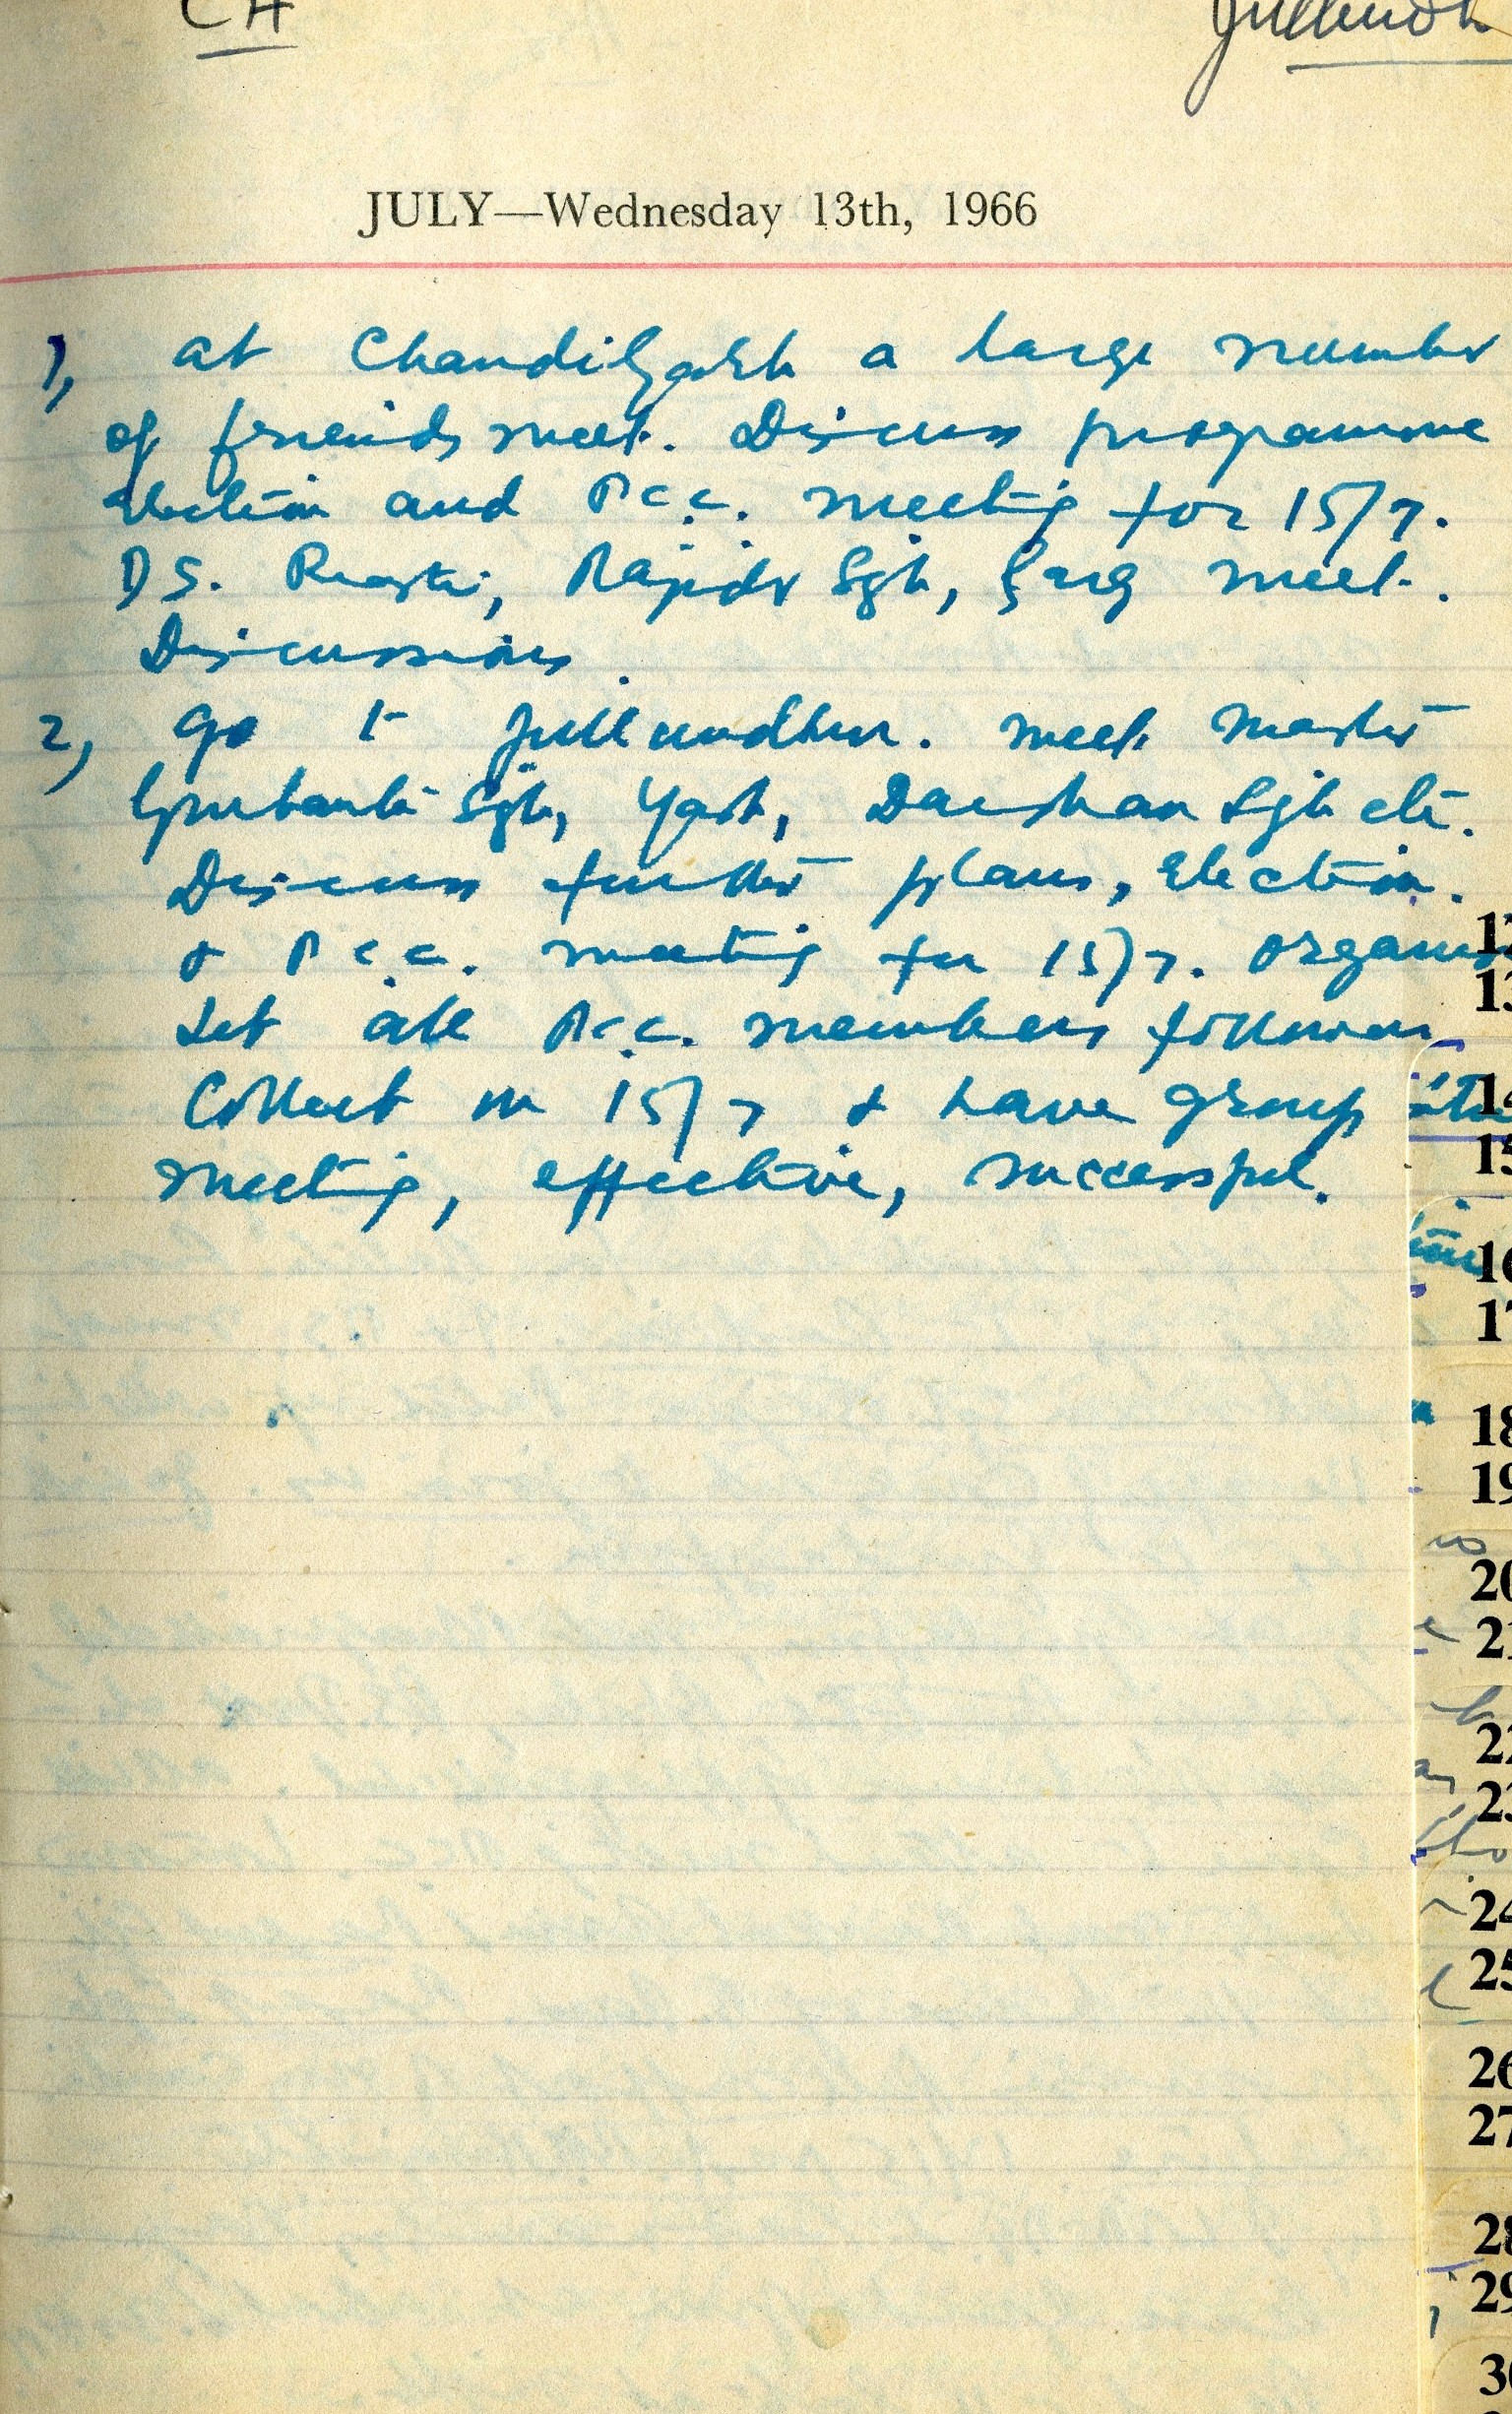 CH Jullundh
JULY—Wednesday 13th, 1966
1, at Chandigarh a large number
of friends meet. Discuss programme
election and P.C.C. meeting for 15/7.
DS. Rajidr Sgh, Garg meet.
Discussions.
2, go to Jullundhur. meet Master
Gurbanta Sgh, Yash, Darshan Sgh etc.
Discuss further plans, Election.
& P.C.C. meeting for 15/7. Organise
Let all P.C.C. members followers
Collect on 15/7 & have group
meeting, effective, successful.
12
13
14
15
16
17
18
19
20
21
22
23
24
25
26
27
28
29
30